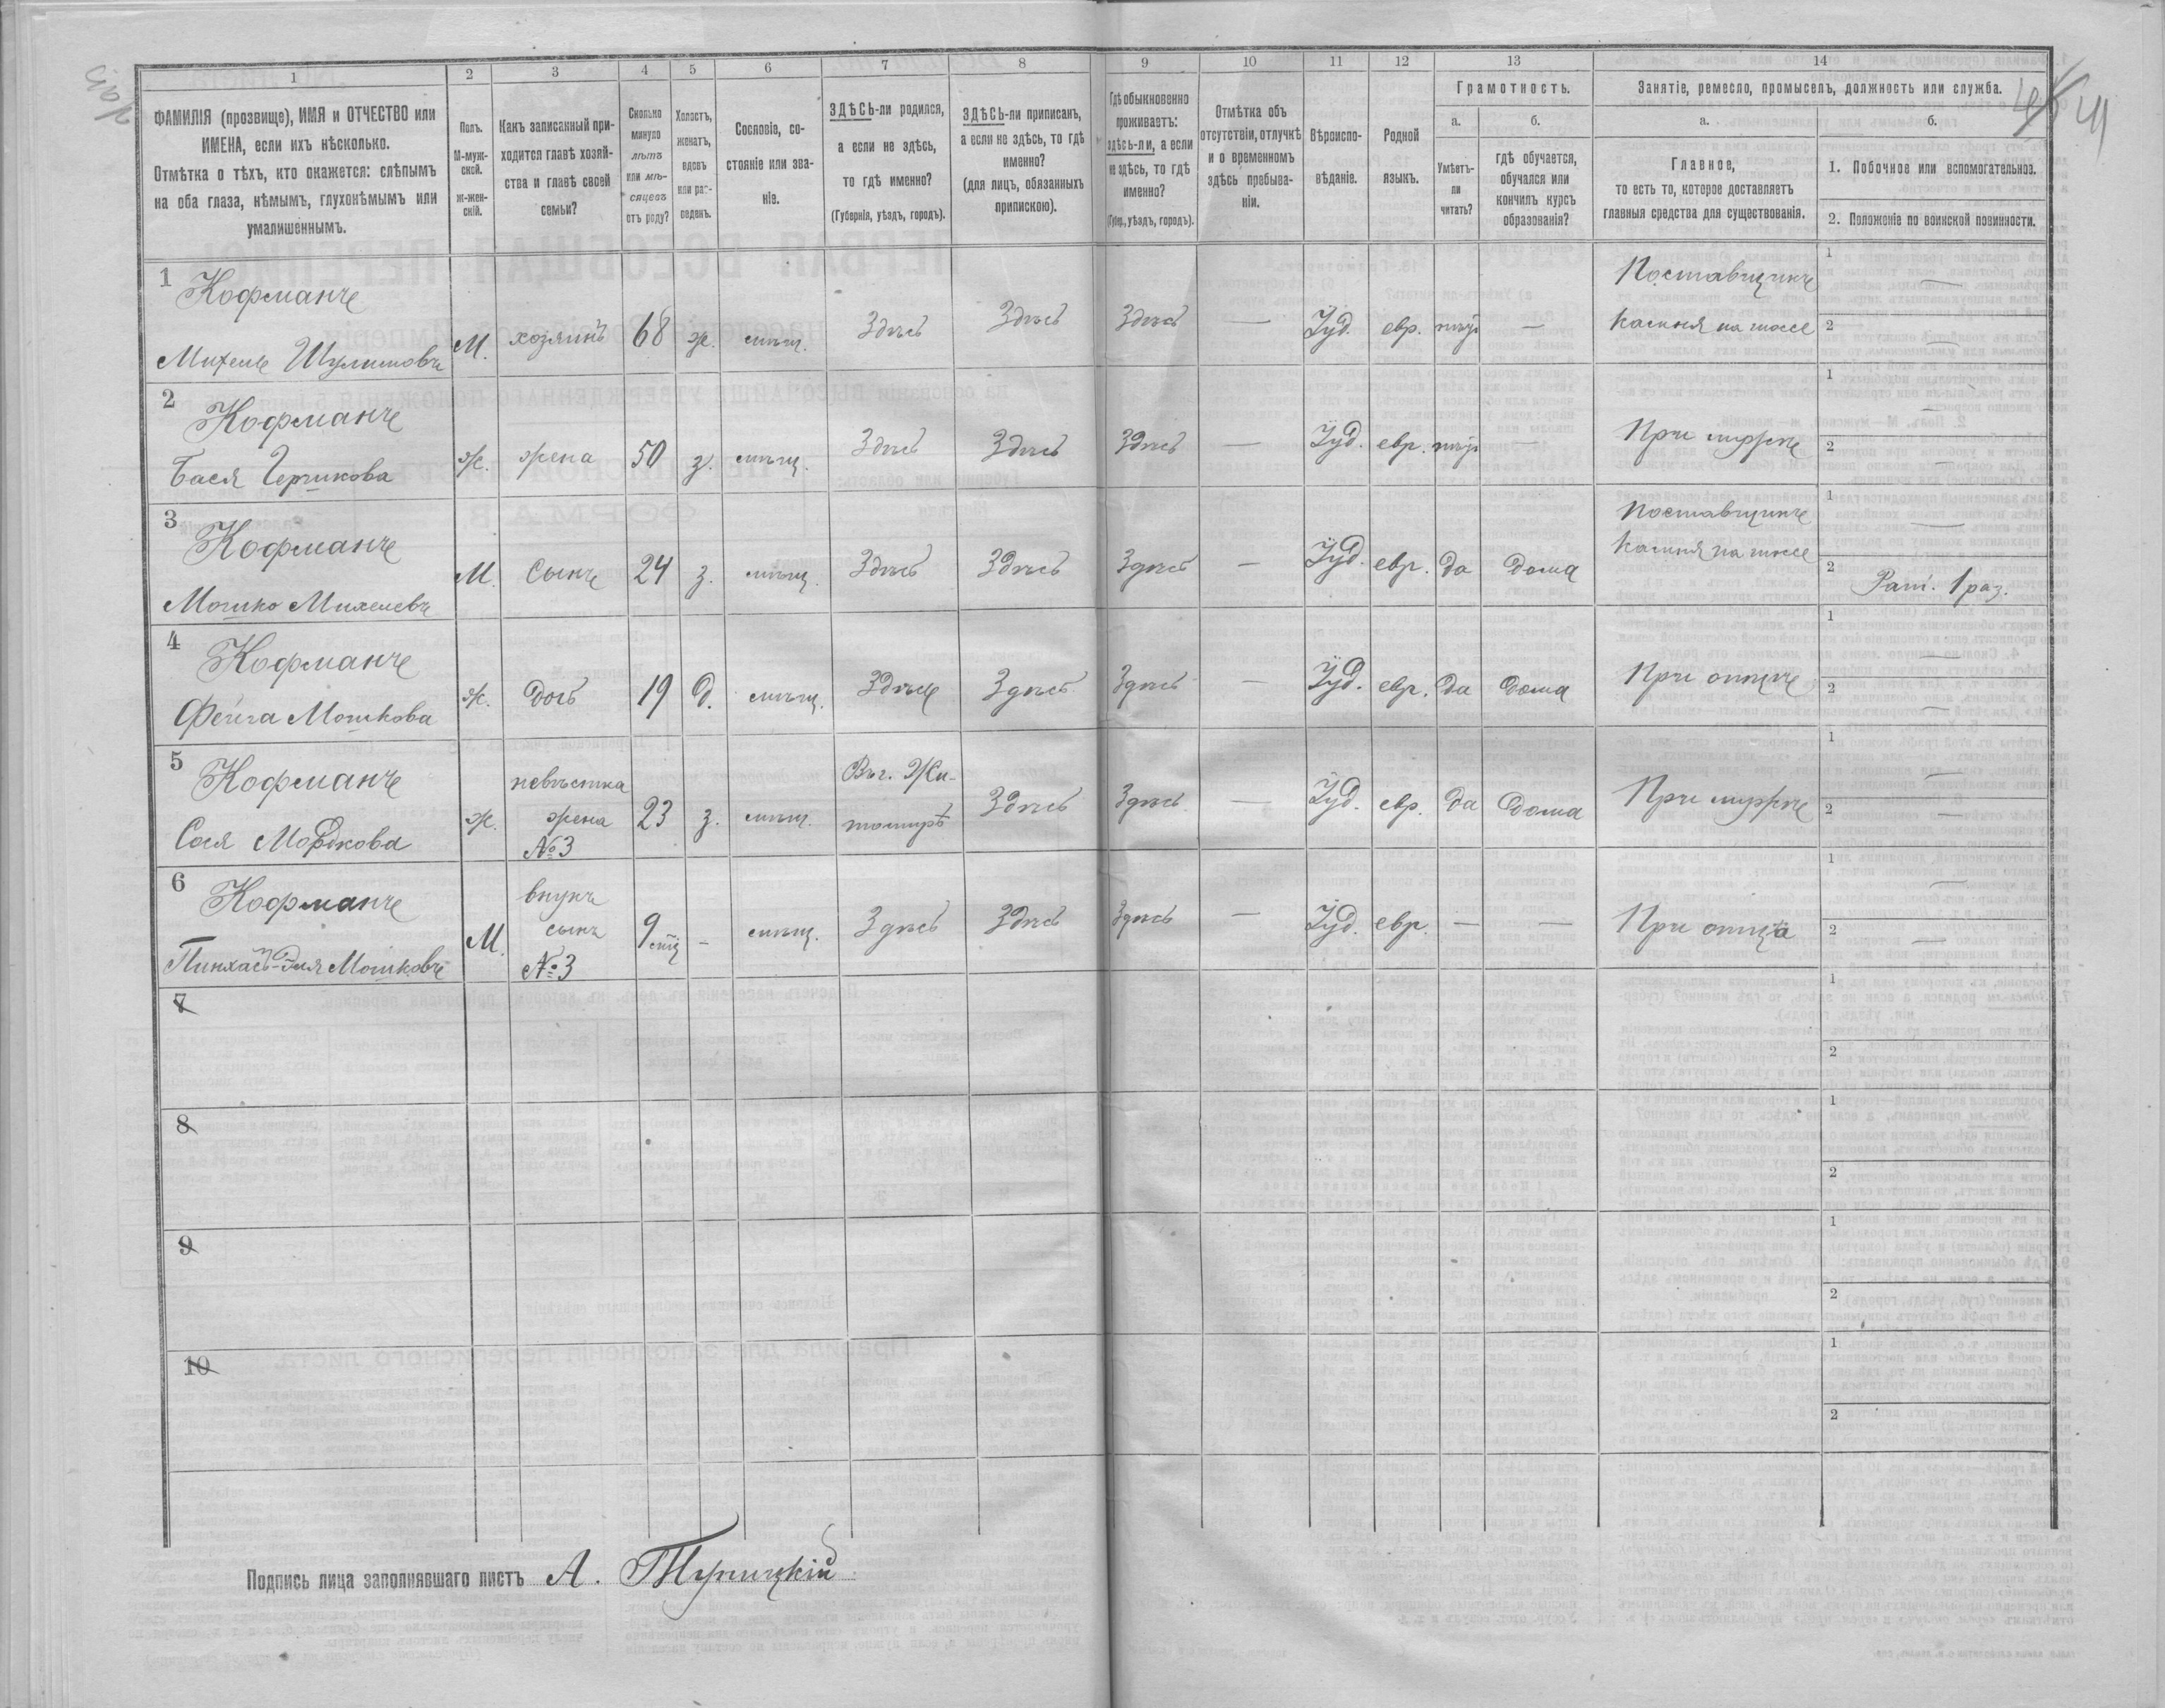 1 2 3 4 5 6 7 8 9 10 11 12 13 14
ФАМИЛІЯ (прозвище), ИМЯ и ОТЧЕСТВО или
ИМЕНА, если ихъ нѣсколько.
Отмѣтка о тѣхъ, кто окажется: слѣпымъ
на оба глаза, нѣмымъ, глухонѣмымъ или
умалишеннымъ.
Полъ.
М-муж-
ской.
Ж-жен-
скій.
Какъ записанный при-
ходится главѣ хозяй-
ства и главѣ своей
семьи?
Сколько
минуло
лѣтъ
или мѣ-
сяцевъ
отъ роду?
Холостъ,
женатъ,
вдовъ
или раз-
веденъ.
Сословіе, со-
стояніе или зва-
ніе.
ЗДѢСЬ-ли родился,
а если не здѣсь,
то гдѣ именно?
(Губернія, уѣздъ, городъ).
ЗДѢСЬ-ли приписанъ,
а если не здѣсь, то гдѣ
именно?
(для лицъ, обязанныхъ
припискою).
Гдѣ обыкновенно
проживаетъ:
здѣсь-ли, а если
не здѣсь, то гдѣ
именно?
(Губер., уѣздъ, городъ).
Отмѣтка объ
отсутствіи, отлучкѣ
и о временномъ
здѣсь пребыва-
ніи.
Вѣроиспо-
вѣданіе.
Родной
языкъ.
Грамотность.
а.
Умѣетъ-
ли
читать?
б.
гдѣ обучается,
обучался или
кончилъ курсъ
образованія?
Занятіе, ремесло, промыселъ, должность или служба.
а.
Главное,
то есть то, которое доставляетъ
главныя средства для существованія.
б.
1. Побочное или вспомогательное.
2. Положеніе по воинской повинности.
1 Кофманъ
Михель Шулимовъ
М. хозяинъ 68 ж. мѣщ. Здѣсь Здѣсь Здѣсь — Іуд. евр. нѣтъ —
Поставщикъ
камня на шоссе
1 —
2 —
2 Кофманъ
Бася Гершкова
ж. жена 50 з. мѣщ. Здѣсь Здѣсь Здѣсь — Іуд. евр. нѣтъ —
При мужѣ
1 —
2 —
3 Кофманъ
Мошко Михелевъ
М. сынъ 24 з. мѣщ. Здѣсь Здѣсь Здѣсь — Іуд. евр. да дома
Поставщикъ
камня на шоссе
1 —
2 Рат. 1 раз.
4 Кофманъ
Фейга Мошкова
ж. дочь 19 д. мѣщ. Здѣсь Здѣсь Здѣсь — Іуд. евр. да дома
При отцѣ
1 —
2 —
5 Кофманъ
Сося Мордкова
ж. невѣстка
жена
№ 3
23 з. мѣщ. Въ г. Жи-
томирѣ
Здѣсь Здѣсь — Іуд. евр. да дома
При мужѣ
1 —
2 —
6 Кофманъ
Пинхасъ-Эля Мошковъ
М. внукъ
сынъ
№ 3
9 — мѣщ. Здѣсь Здѣсь Здѣсь — Іуд. евр. — —
При отца
1 —
2 —
7
1
2
8
1
2
9
1
2
10
1
2
Подпись лица заполнявшаго листъ А.